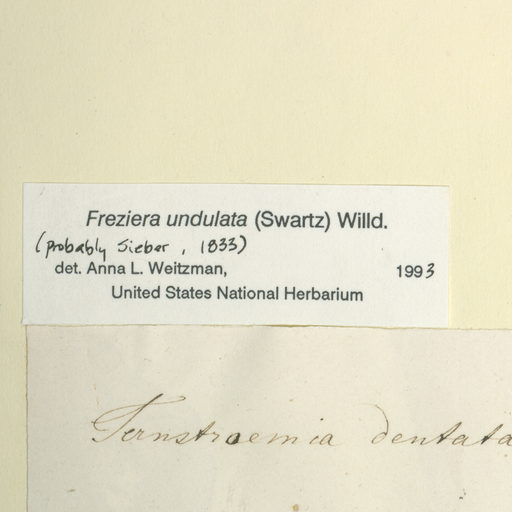 Freziera undulata (Swartz) Willd.
(probably Sieber, 1833)
det. Anna L. Weitzman, 1993
United States National Herbarium
Ternstroemia dentata